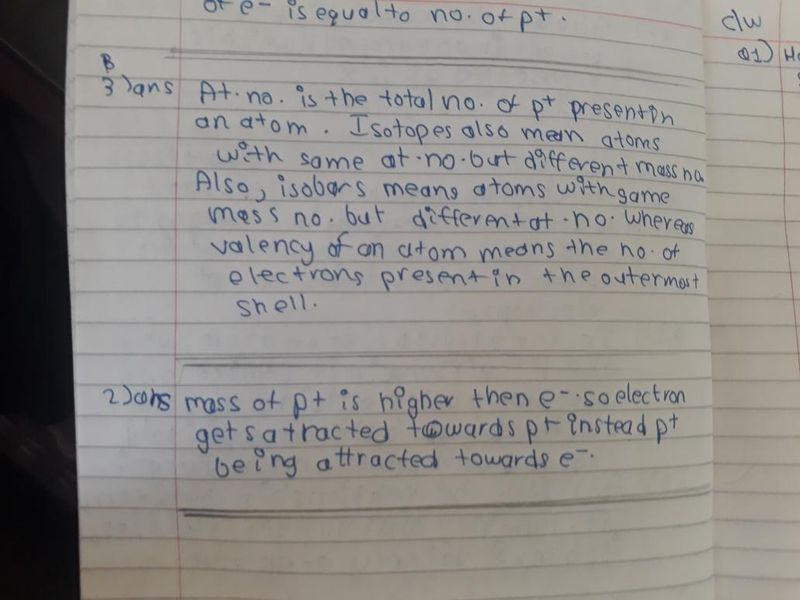 of e- is equal to no. of p+.
c/w
Q1) Ho
B
3) ans At. no. is the total no. of p+ present in
an atom. Isotopes also mean atoms
with same at. no. but different mass no.
Also, isobars means atoms with same
mass no. but different at. no. whereas
valency of an atom means the no. of
electrons present in the outermost
shell.
2) ans mass of p+ is higher then e-. so electron
gets atracted towards p+ instead p+
being attracted towards e-.